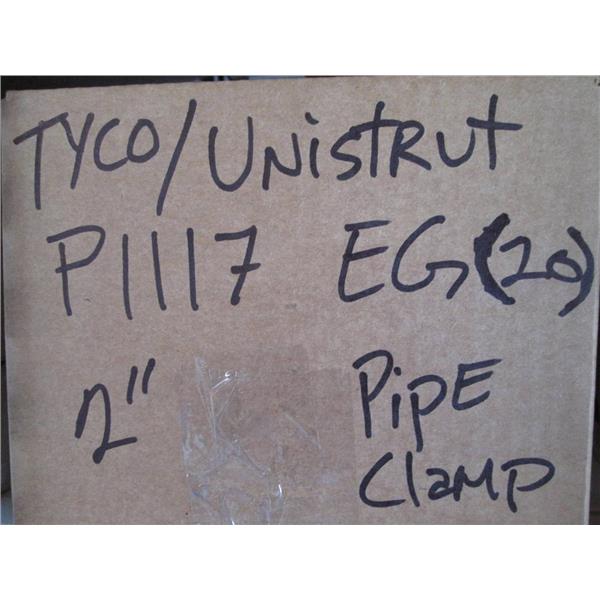 TYCO/UNiStRUt
P1117 EG (20)
2" PipE
ClaMP